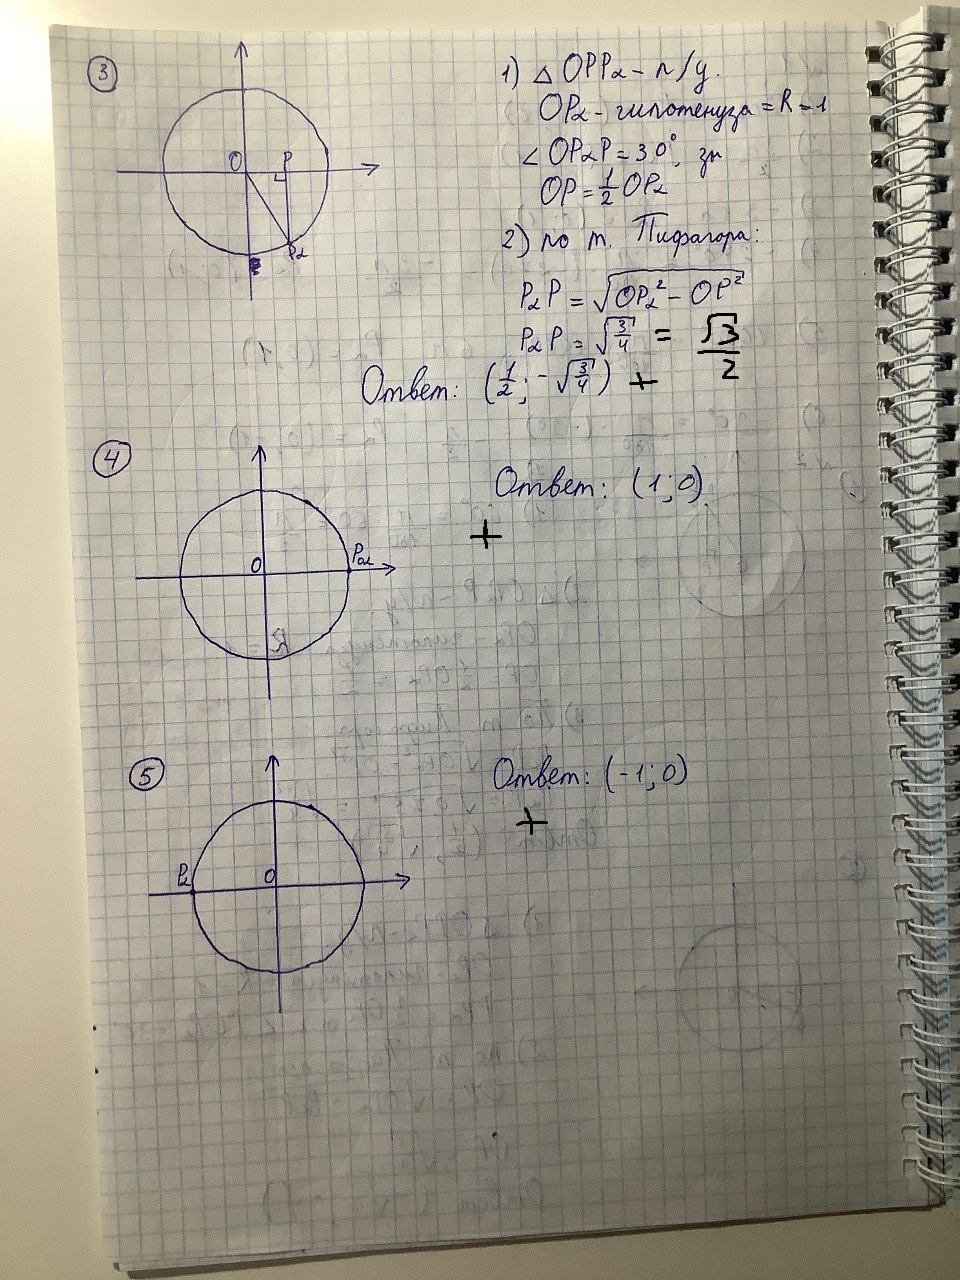 3
1) △ OPPα - п/у.
OPα - гипотенуза = R = 1
∠ OPαP = 30°, зн
OP = 1/2 OPα
2) по т. Пифагора:
PαP = √(OPα² - OP²)
PαP = √(3/4) = √3/2
Ответ: (1/2; -√(3/4)) +
O P
Pα
4
Ответ: (1; 0)
+
O Pα
R
5
Ответ: (-1; 0)
+
Pα O